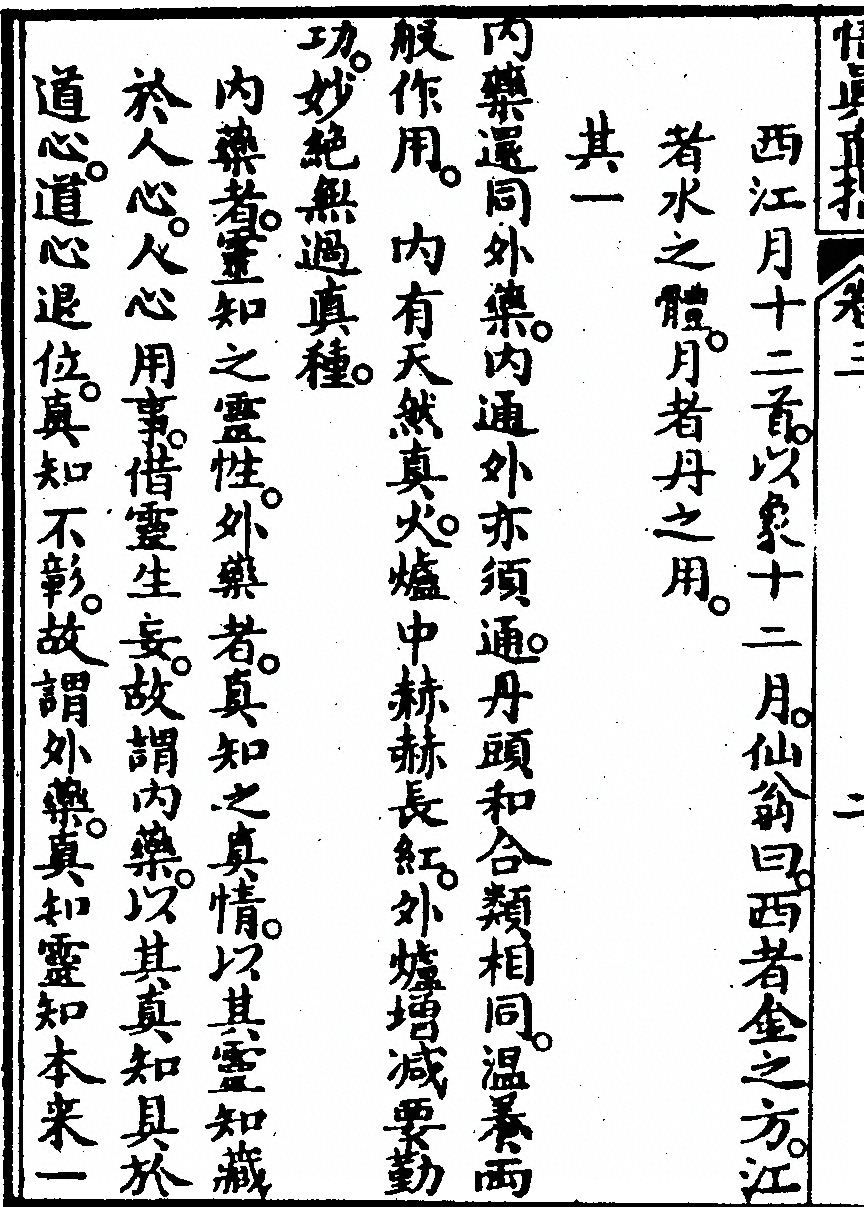 悟真直指　卷三　二
西江月十二首。以象十二月。仙翁曰。西者金之方。江
者水之體。月者丹之用。
其一
内藥還同外藥。内通外亦須通。丹頭和合類相同。温養兩
般作用。　内有天然真火。爐中赫赫長紅。外爐增减要勤
功。妙絶無過真種。
内藥者。靈知之靈性。外藥者。真知之真情。以其靈知藏
於人心。人心用事。借靈生妄。故謂内藥。以其真知具於
道心。道心退位。真知不彰。故謂外藥。真知靈知本来一